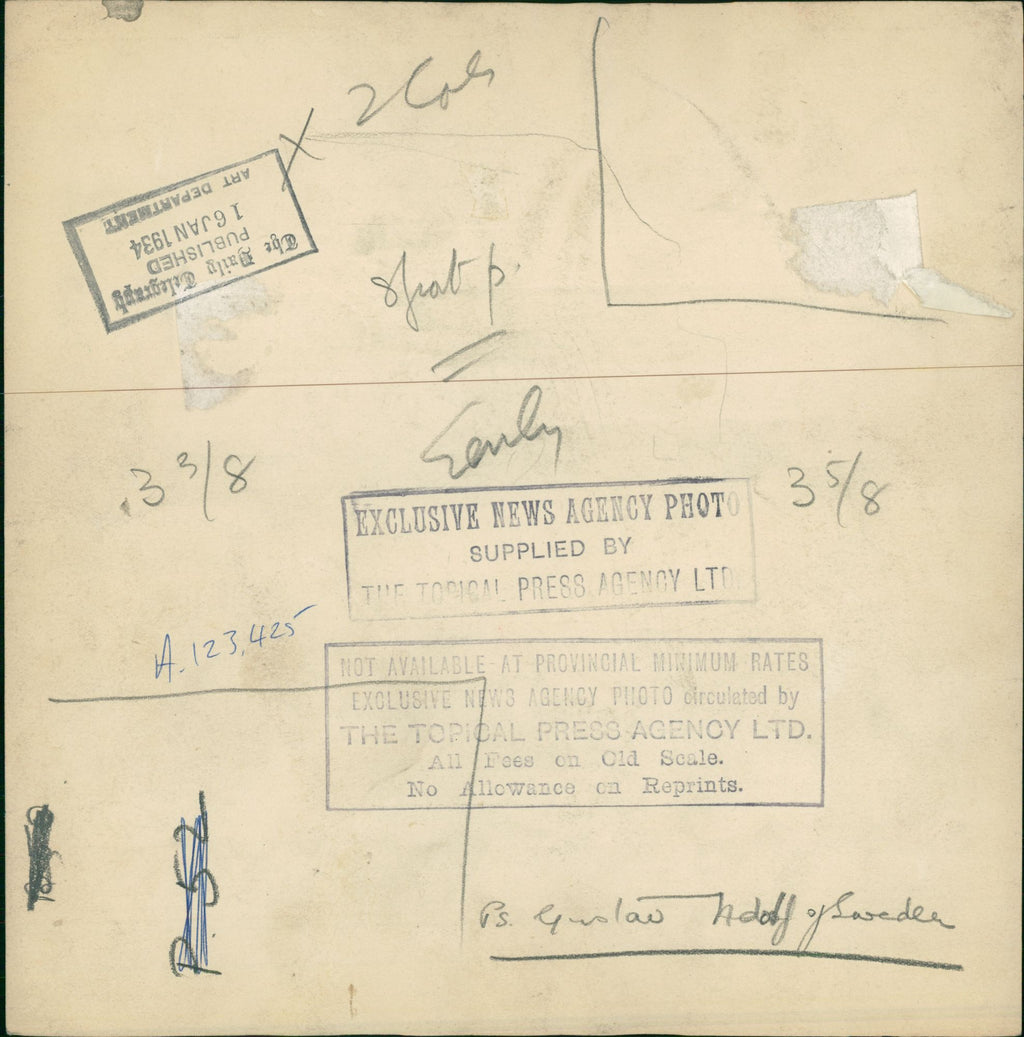 2 Cols
X
The Daily Telegraph
PUBLISHED
16 JAN 1934
ART DEPARTMENT
Early
3 3/8
3 5/8
EXCLUSIVE NEWS AGENCY PHOTO
SUPPLIED BY
THE TOPICAL PRESS AGENCY LTD.
A.123,425
NOT AVAILABLE AT PROVINCIAL MINIMUM RATES
EXCLUSIVE NEWS AGENCY PHOTO circulated by
THE TOPICAL PRESS AGENCY LTD.
All Fees on Old Scale.
No Allowance on Reprints.
Ps. Gustav Adolf of Sweden